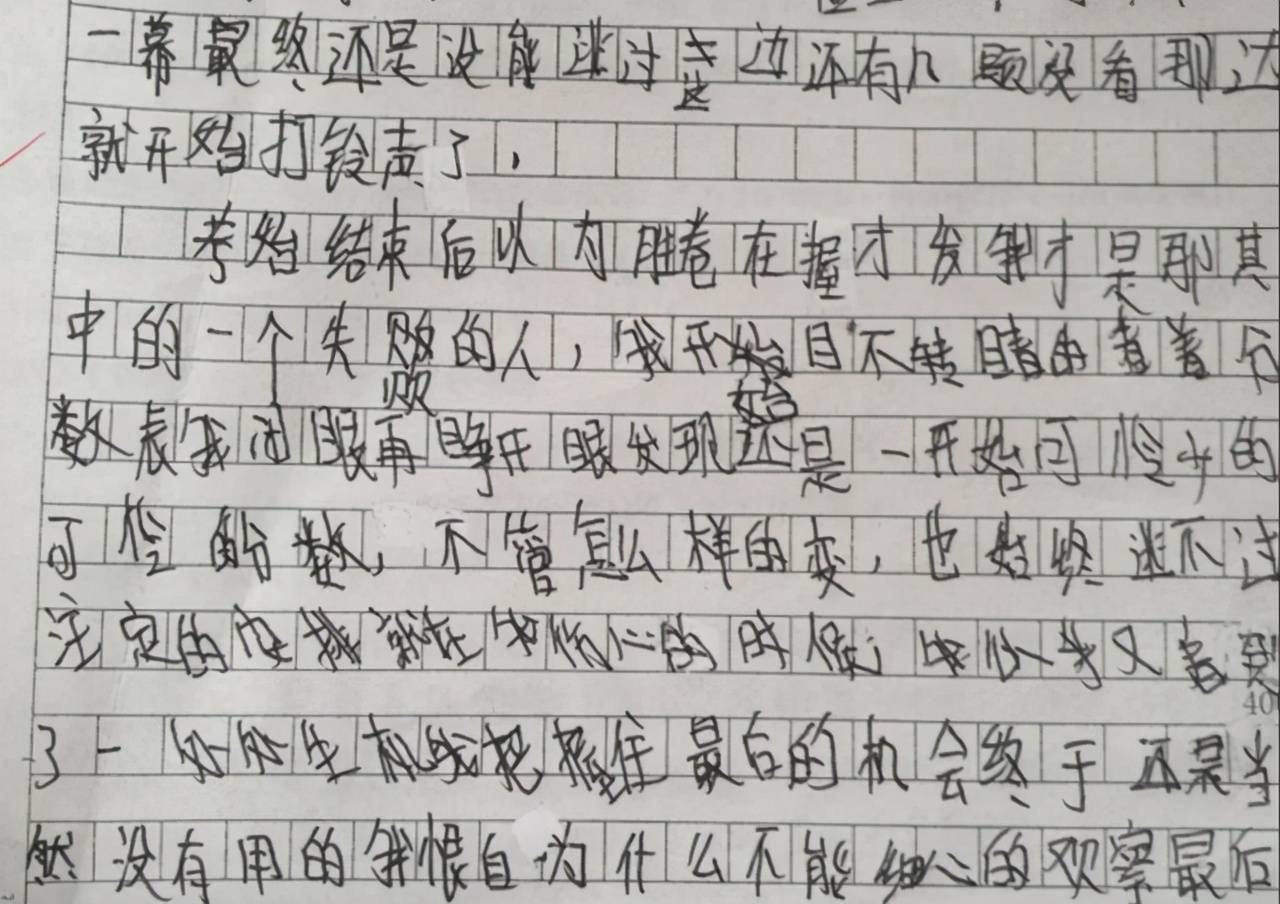 一幕最终还是没能逃过这边还有几题没看那边
就开始打铃声了，
考始结束后以为胜卷在握才发我才是那其
中的一个失败的人，我开始目不转睛的着着分
数表我闭眼再睁开眼发现还是一开始可怜少的
可怜的分数，不管怎么样的变，也始终逃不过
注定的安排就在伤心的时候又看到
40
了一处处生机我把握住最后的机会终于还是当
然没有用的我恨自为什么不能细心的观察最后